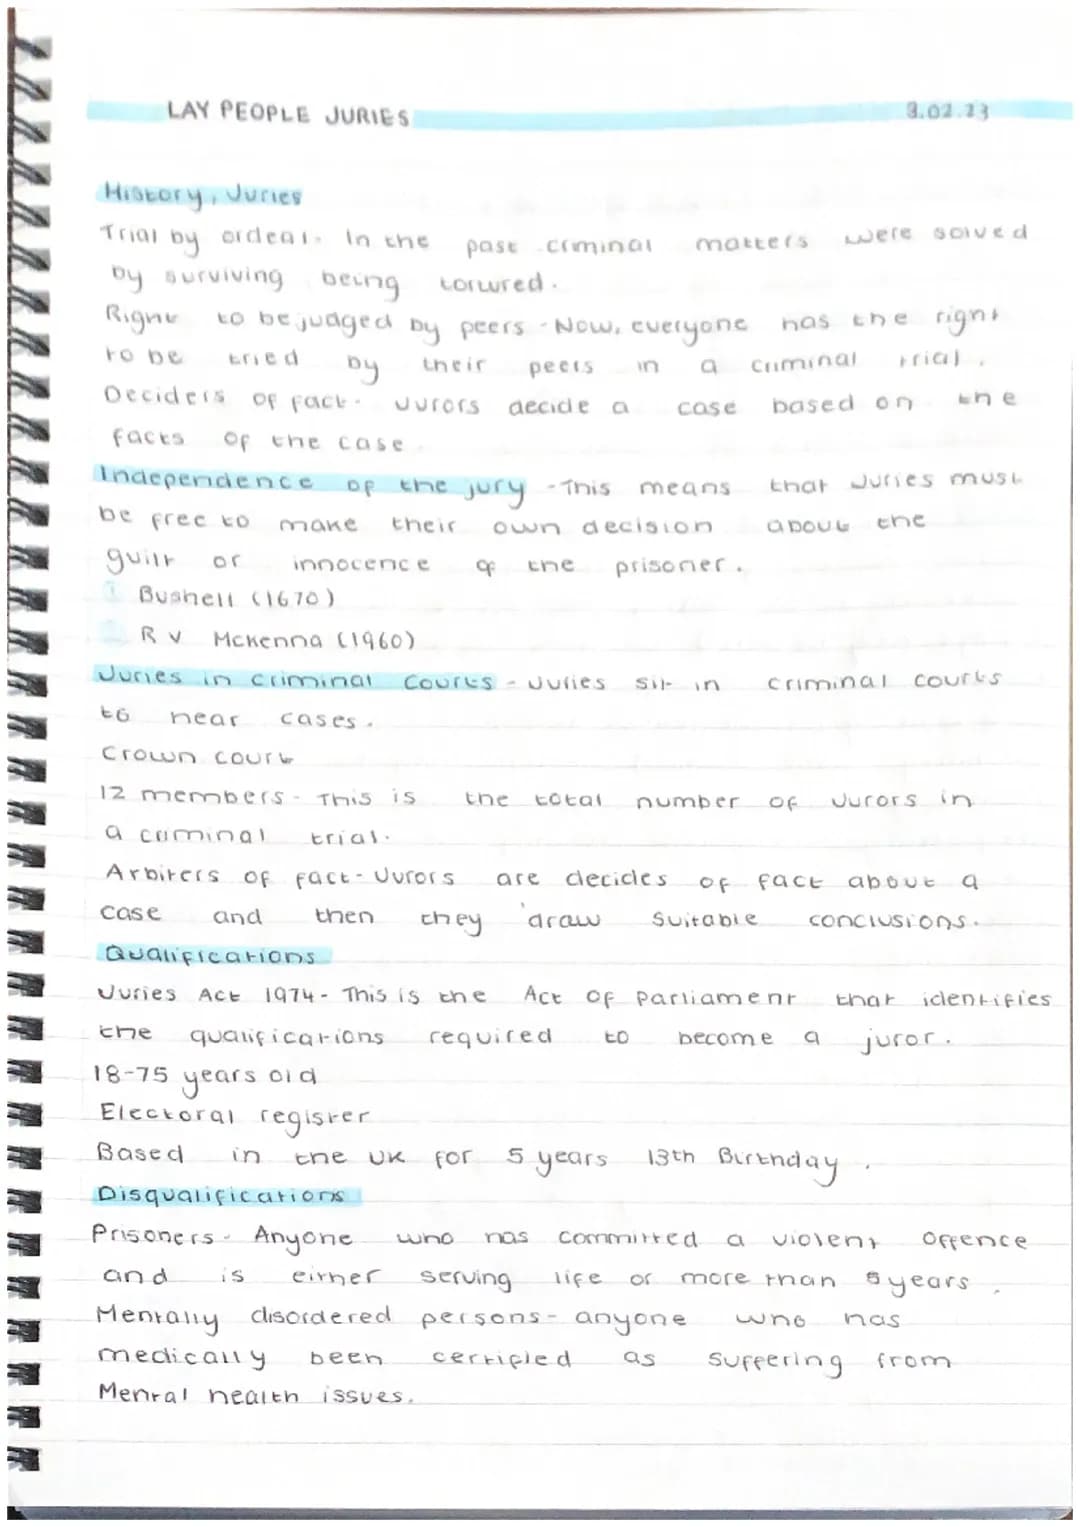 LAY PEOPLE JURIES 3.02.23
History, Juries
Trial by ordeal. In the past criminal matters were solved
by surviving being tortured.
Right to be judged by peers - Now, everyone has the right
to be tried by their peers in a criminal trial.
Deciders of fact - Jurors decide a case based on the
facts of the case.
Independence of the jury - This means that Juries must
be free to make their own decision about the
guilt or innocence of the prisoner.
1 Bushell (1670)
2 R v McKenna (1960)
Juries in criminal Courts - Juries sit in criminal courts
to hear cases.
Crown court
12 members - This is the total number of Jurors in
a criminal trial.
Arbiters of fact - Jurors are decides of fact about a
case and then they draw suitable conclusions.
Qualifications
Juries Act 1974 - This is the Act of Parliament that identifies
the qualifications required to become a juror.
18-75 years old
Electoral register
Based in the UK for 5 years 13th Birthday.
Disqualifications
Prisoners - Anyone who has committed a violent offence
and is either serving life or more than 5 years.
Mentally disordered persons - anyone who has
medically been certified as suffering from
Mental health issues.